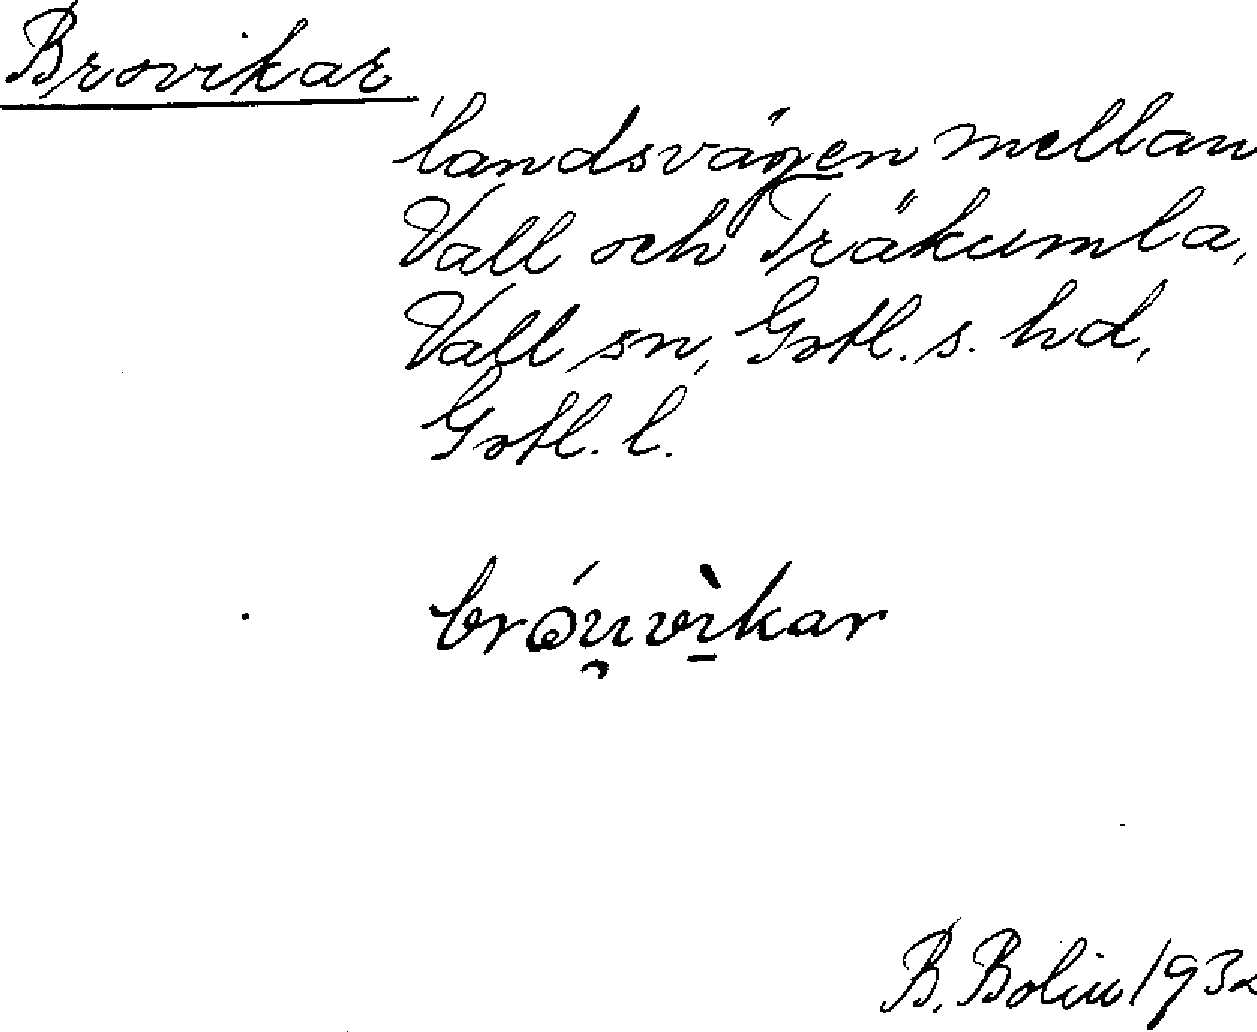 Brovikar
landsvägen mellan
Vall och Träkumla,
Vall sn, Gotl. s. hd,
Gotl. l.
bró̤u̯vì̠kar
B. Bolin 1932